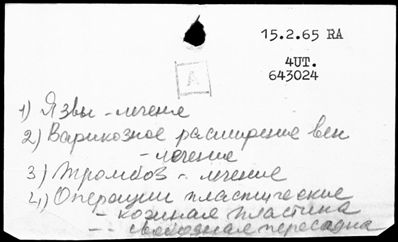 15.2.65 RA
4UT.
643024
A
1) Язвы - лечение
2) Варикозное расширение вен
- лечение
3) Тромбоз - лечение
4) Операции пластические
- кожная пластика
- свободная пересадка